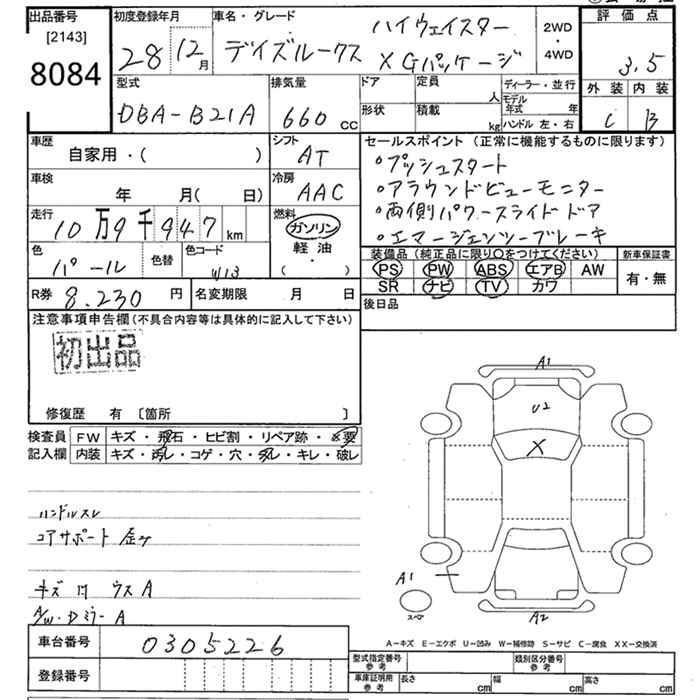 出品番号
[2143]
8084
初度登録年月
28 12月
車名・グレード
ハイウェイスター
デイズルークス XGパッケージ
2WD
・
4WD
評価点
3.5
外装 内装
C B
型式
DBA-B21A
排気量
660 cc
ドア
形状
定員
人
積載
kg
ディーラー・並行
モデル年式 年
ハンドル 左・右
車歴
自家用・( )
シフト
AT
車検
年 月( 日)
冷房
AAC
走行
10万9千947 km
燃料
ガソリン
軽油
・
( )
色
パール
色替
色コード
W13
R券 8.230 円
名変期限 月 日
セールスポイント(正常に機能するものに限ります)
・プッシュスタート
・アラウンドビューモニター
・両側パワースライドドア
・エマージェンシーブレーキ
装備品(純正品に限り○をつけてください)
PS PW ABS エアB AW
SR ナビ TV カワ
新車保証書
有・無
後日品
注意事項申告欄(不具合内容等は具体的に記入して下さい)
初出品
修復歴 有〔箇所 〕
検査員記入欄
FW キズ・飛石・ヒビ割・リペア跡・要
内装 キズ・汚レ・コゲ・穴・スレ・キレ・破レ
ハンドルスレ
コアサポート
キズ 凹 ウス A
A/W・Dミラー A
A1
U2
X
A1
スペア
A2
A-キズ E-エクボ U-凹み W-補修跡 S-サビ C-腐食 XX-交換済
車台番号 0305226
登録番号
型式指定番号 参考
類別区分番号 参考
車庫証明用 参考
長さ cm
幅 cm
高さ cm